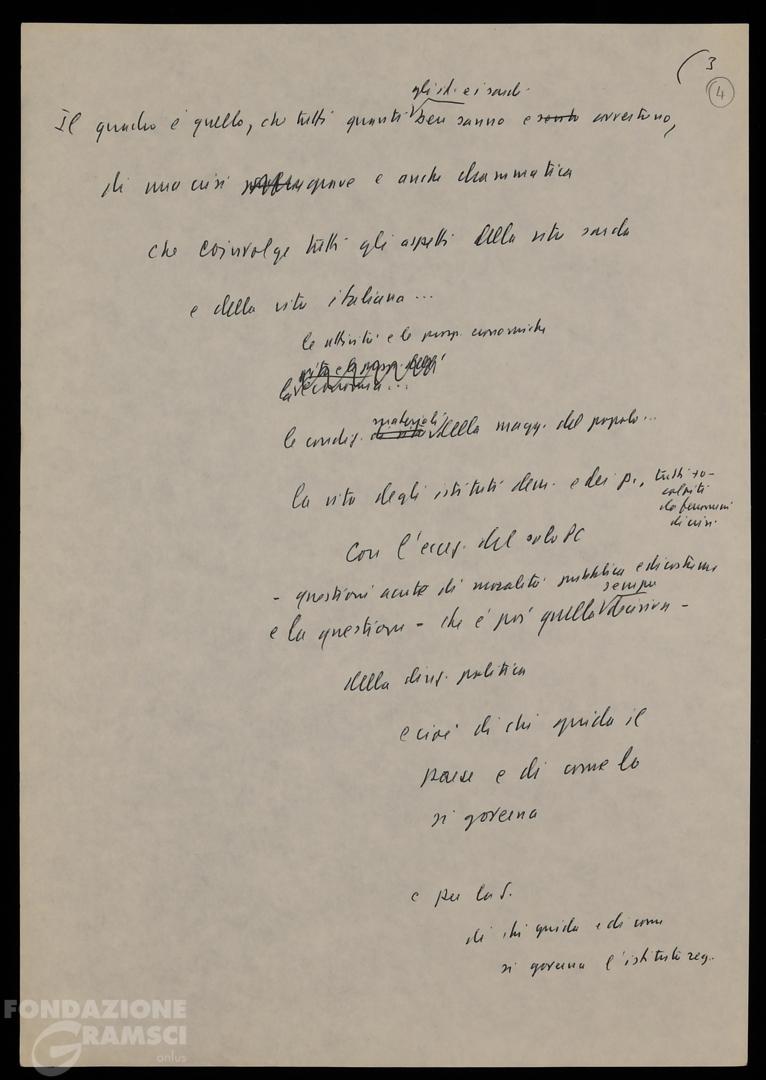 3
4
gli it. e i sardi
Il quadro è quello, che tutti quanti ben sanno e sento avvertono,
di una crisi grave e anche drammatica
che coinvolge tutti gli aspetti della vita sarda
e della vita italiana...
le attività e le prosp. economiche
la economia...
materiali
le condiz. di vita della magg. del popolo...
la vita degli istituti dem. e dei p., tutti so-
colpiti
da fenomeni
di crisi
Con l'eccez. del solo PC
- questioni acute di moralità pubblica e di costume
sempre
e la questione - che è poi quella decisiva -
della direz. politica
e cioè di chi guida il
paese e di come lo
si governa
e per la S.
di chi guida e di come
si governa l'istituto reg.
FONDAZIONE
GRAMSCI
onlus